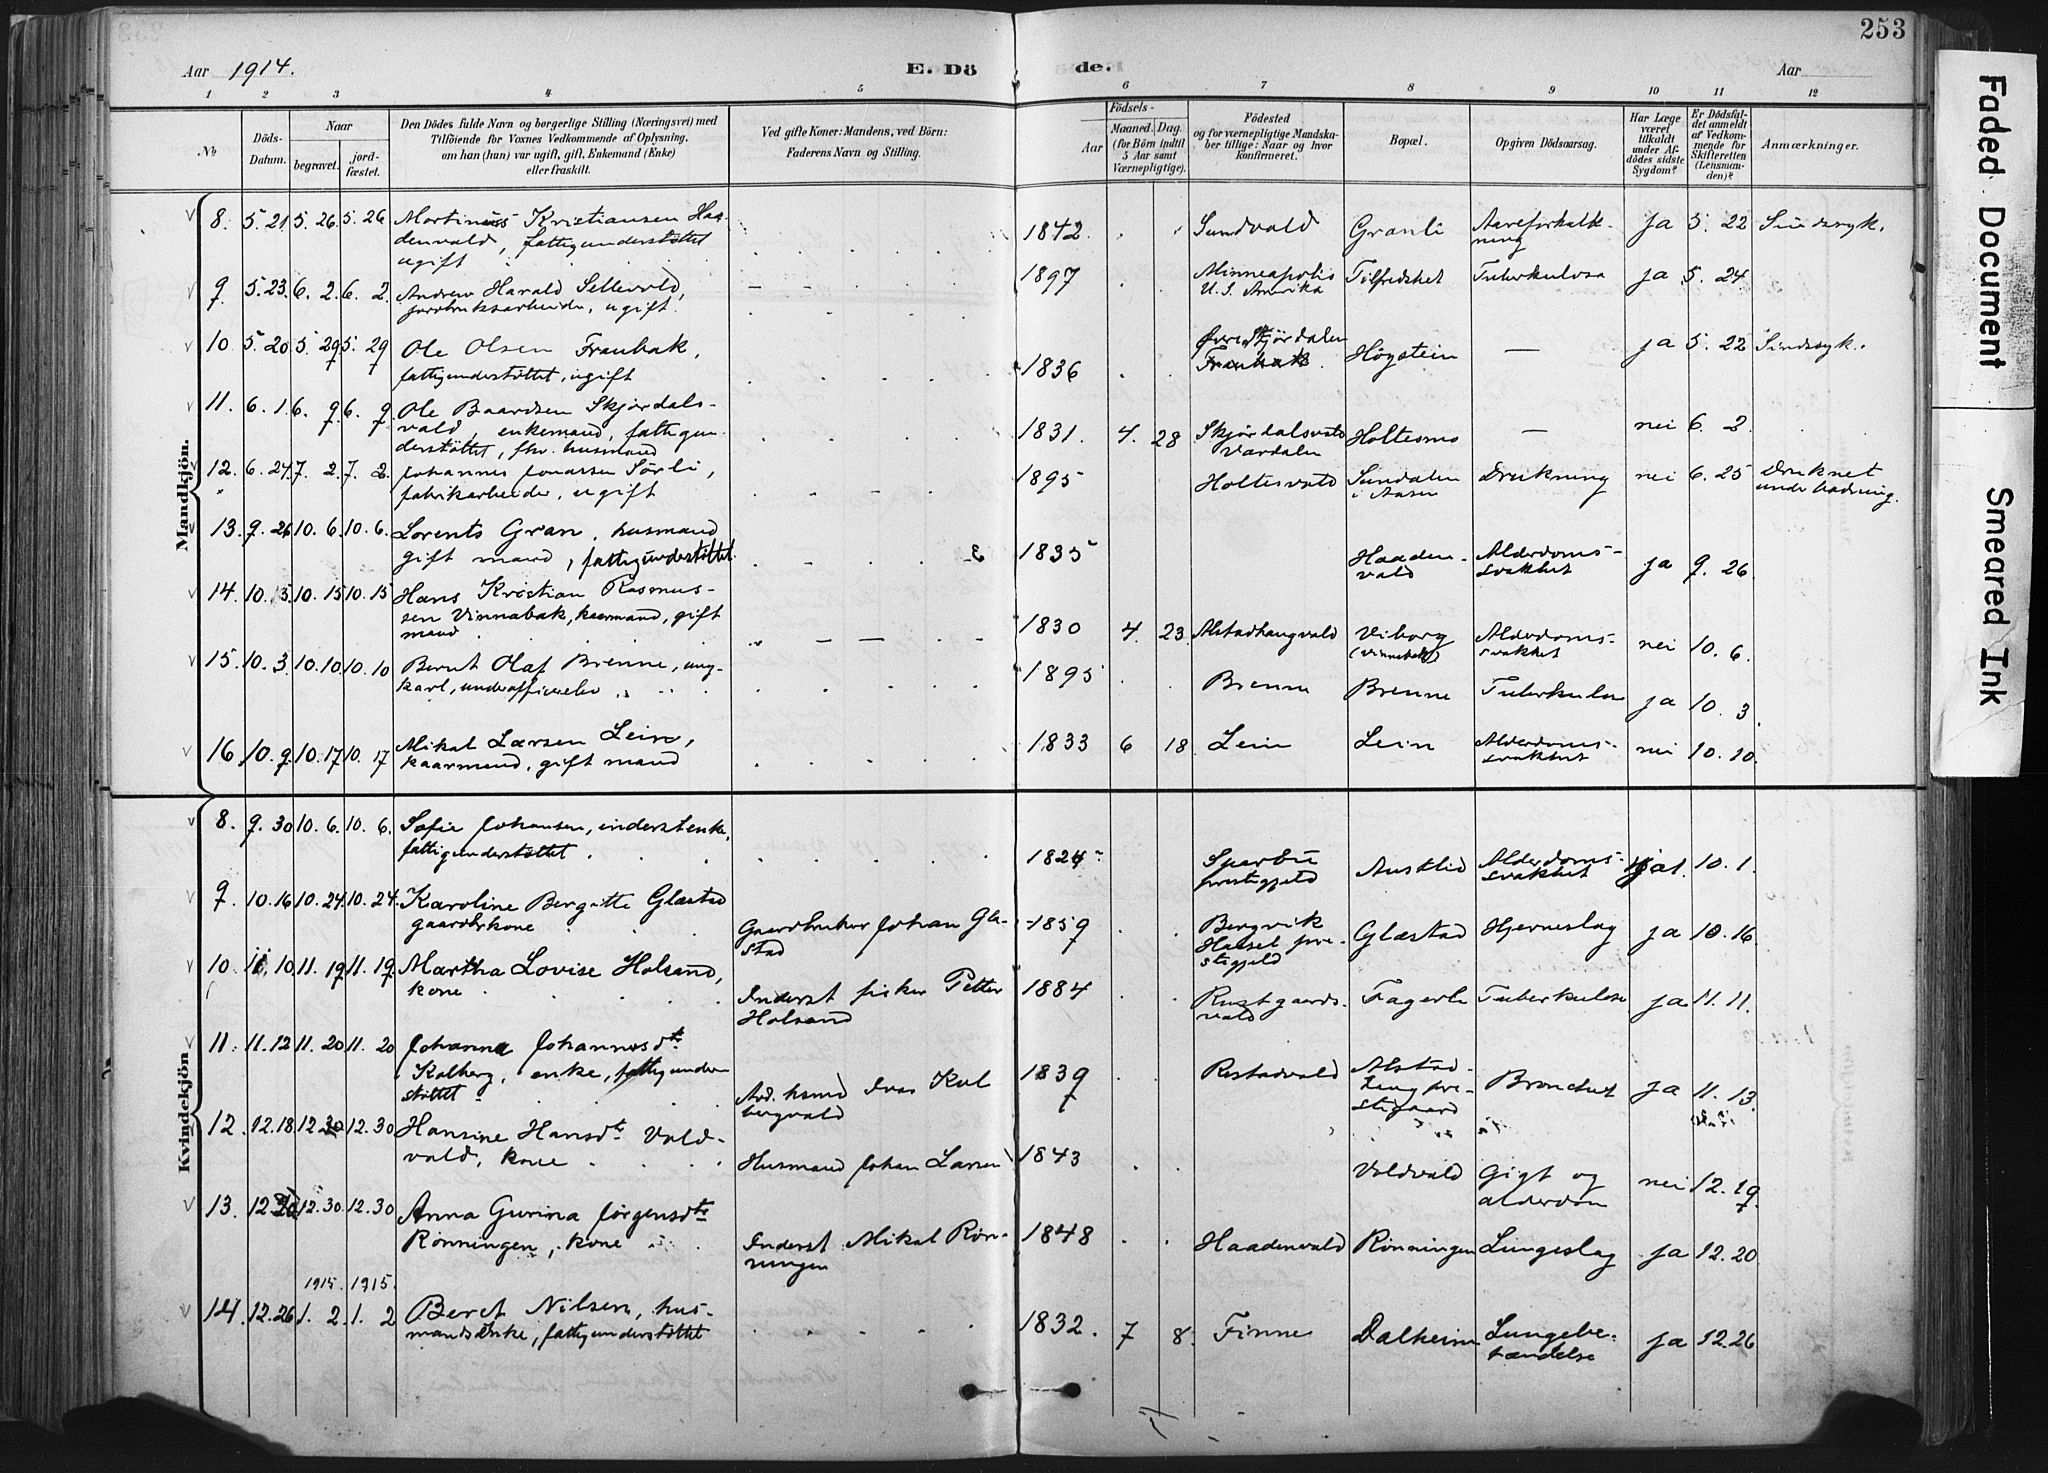 253
Aar 1914.
E. Döde.
Aar
1 2 3 4 5 6 7 8 9 10 11 12
No
Döds-Datum.
Naar
begravet.
jordfæstet.
Den Dödes fulde Navn og borgerlige Stilling (Næringsvei) med
Tilföiende for Voxnes Vedkommende af Oplysning,
om han (hun) var ugift, gift, Enkemand (Enke)
eller fraskilt.
Ved gifte Koner: Mandens, ved Börn:
Faderens Navn og Stilling.
Födsels-
Aar
Maaned. Dag.
(for Börn indtil
5 Aar samt
Værnepligtige).
Födested
og for værnepligtige Mandskaber tillige: Naar og hvor
konfirmeret.
Bopæl.
Opgiven Dödsaarsag.
Har Læge
været
tilkaldt
under Afdödes sidste
Sygdom?
Er Dödsfaldet anmeldt
af Vedkommende for
Skifteretten
(Lensmanden)?
Anmærkninger.
Mandkjön.
8. 5. 21 5. 26. 5. 26 Martinus Kristiansen Haadenvald, fattigunderstöttet ugift 1842 Sundvald Granli Aareforkalkning ja 5. 22 Sindssyk.
9 5. 23. 6. 2. 6. 2. Andrew Harald Sellevold, jordbruksarbeider, ugift. 1897 Minneapolis U. S. Amerika Tilfredshet Tuberkulose ja 5. 24
10 5. 20 5. 29 5. 29 Ole Olsen Frauhak, fattigunderstöttet, ugift 1836 Øvre Skjørdalen Høgstein — ja 5. 22 Sindssyk.
11. 6. 1. 6. 9. 6. 9. Ole Baardsen Skjørdalsvald, enkemand, fattigunderstöttet, fhv. husmand 1831. 4. 28 Skjørdalsvald Værdalen Holtesmo — nei 6. 2.
12. 6. 24. 7. 2. 7. 2. Johannes Jonassen Sörli, fabrikarbeider, ugift 1895 Holtesvald Sundalen i Aasen Drukning nei 6. 25 Druknet under badning.
13. 9. 26 10. 6. 10. 6. Lorents Gran, husmand gift mand, fattigunderstöttet 1835 Haadenvald Alderdomssvakhet ja 9. 26
14. 10. 13 10. 15 10. 15 Hans Kristian Rasmussen Vinnabak, kaarmand, gift mand 1830 4. 23. Alstadhaugvald Viborg (Vinnabak) Alderdomssvakhet nei 10. 6.
15. 10. 3. 10. 10. 10. 10 Bernt Olaf Brenne, ungkarl, underofficerselev 1895 Brenne Brenne Tuberkulose ja 10. 3.
16 10. 9. 10. 17 10. 17 Mikal Larsen Lein, kaarmand, gift mand 1833 6 18. Lein Lein Alderdomssvakhet nei 10. 10.
Kvindekjön
8. 9. 30 10. 6. 10. 6. Sofie Johansen, inderstenke, fattigunderstöttet 1824 Sparbu prestegjeld Austlid Alderdomssvakhet ja 10. 1.
9. 10. 16 10. 24. 10. 24. Karoline Bergitte Glæstad gaardbrkone Gaardbruker Johan Glæstad 1859 Bergvik Halsel prestegjeld Glæstad Hjerneslag ja 10. 16
10. 11. 10 11. 19 11. 19. Martha Lovise Holsand, kone Inderst fisker Petter Holsand 1884 Rustgaardsvald Fagerli Tuberkulose ja 11. 11.
11. 11. 12 11. 20 11. 20 Johanna Johannesdtr Kolberg, enke, fattigunderstöttet Avd. hsmd Ivar Kolbergvald 1839 Restadvald Alstadhaug prestegaard Bronchit ja 11. 13.
12. 12. 18 12. 30 12. 30 Hansine Hansdtr Voldvald, kone Husmand Johan Larsen 1843 Voldvald Gigt og alderdom nei 12. 19.
13. 12. 20 12. 30. 12. 30 Anna Gurina Jörgensdtr Rønningen, kone Inderst Mikal Rønningen 1848 Haadenvald Rønningen Lungeslag ja 12. 20
1915. 1915.
14. 12. 26 1. 2. 1. 2 Beret Nilsen, husmandsenke, fattigunderstöttet 1832. 7 8. Finne Dalheim Lungebetændelse ja 12. 26
Faded Document
Smeared Ink